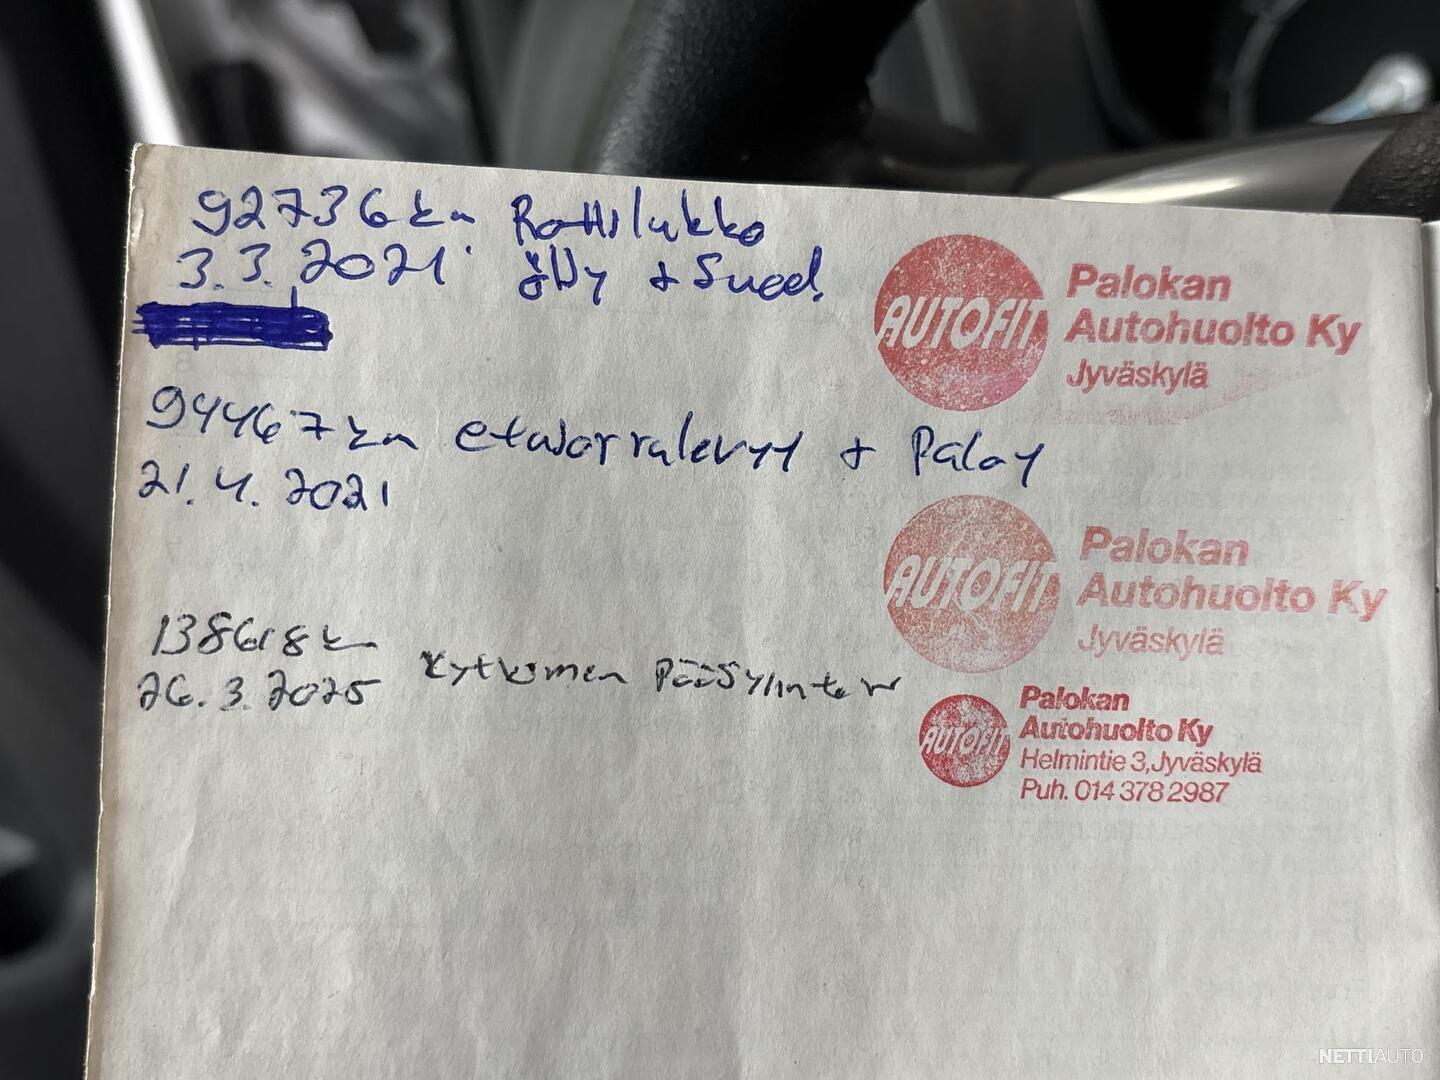 92736 km Rattilukko
3.3.2021 öljy + Suod.
AUTOFIT
Palokan
Autohuolto Ky
Jyväskylä
94467 km etujarrulevyt + Palat
21.4.2021
AUTOFIT
Palokan
Autohuolto Ky
Jyväskylä
138618 km
26.3.2025 Kytkimen Pääsylinteri
AUTOFIT
Palokan
Autohuolto Ky
Helmintie 3, Jyväskylä
Puh. 014 378 2987
NETTIAUTO